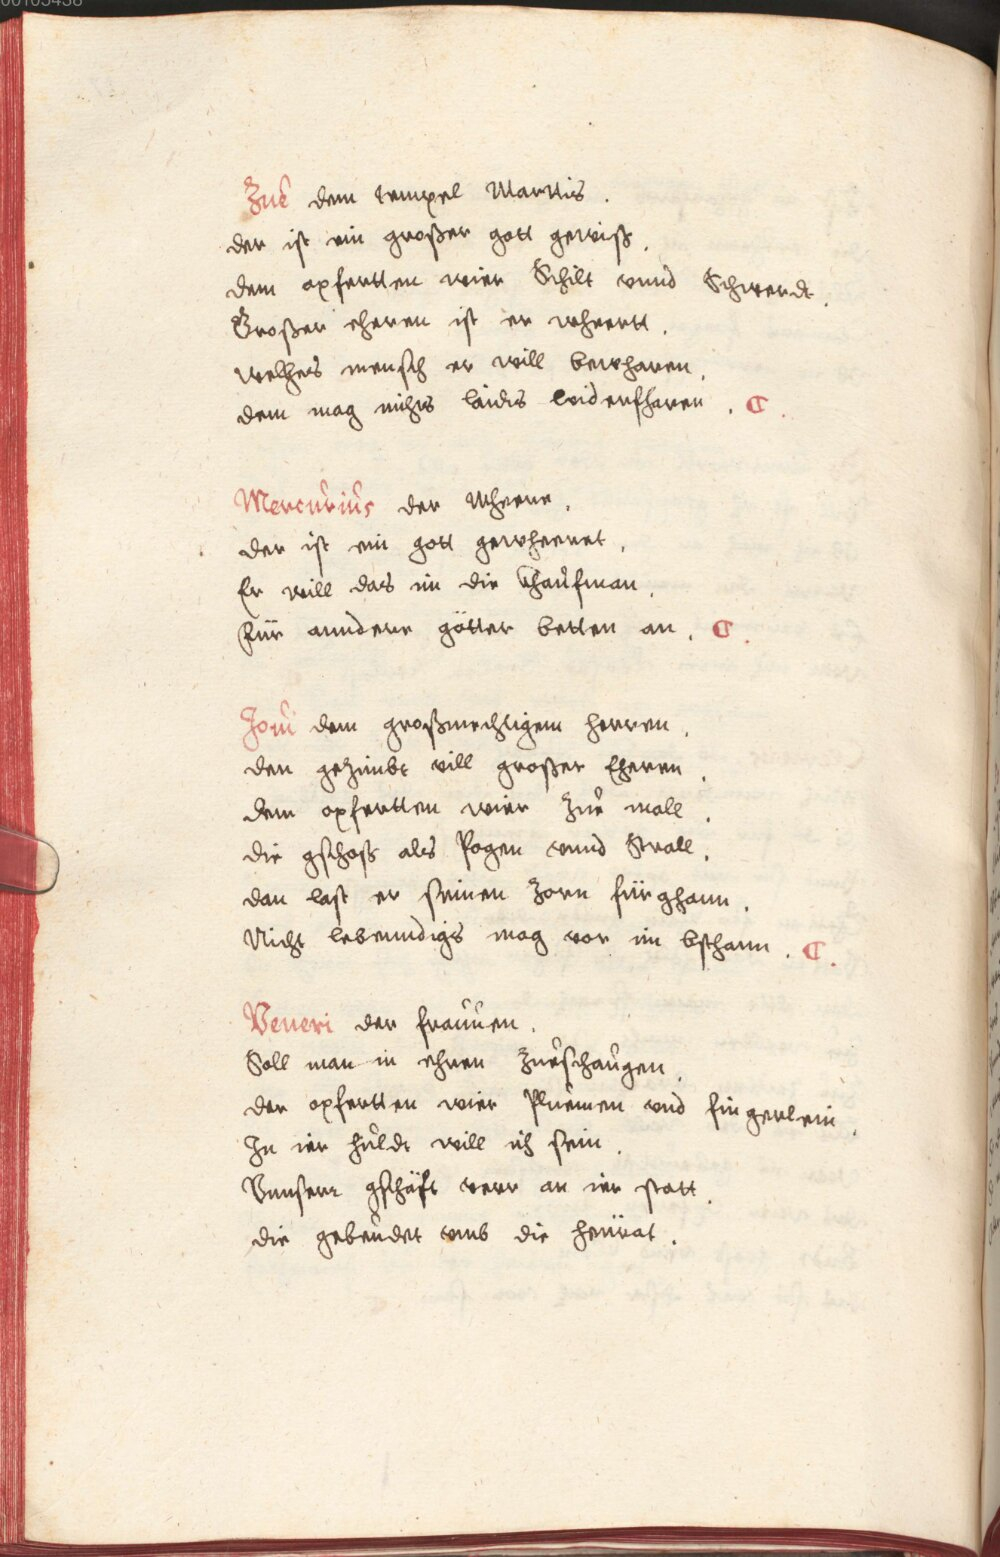 00105458
Zue dem tempel Martis .
der ist ein großer gott gewiß .
dem opfertten wier Schilt vnnd Schwerdt .
Großer eheren ist er wheertt .
welhes mensch er will bewharen .
dem mag nichts laidis widerfharen . C .
Mercurius der wheere .
der ist ein gott gewheeret .
Er will das im die khaufman .
Für anndere götter betten an . C .
Joui dem großmechtigem herren .
den gezimbt vill großer Eheren .
dem opfertten wier Zue mall .
die gschoß als Pogen vnnd Strall .
dan last er seinen Zorn fürghann .
Nicht lebenndigs mag vor im bsthann . C .
Veneri der frauuen .
Soll man in ehren Zueschaugen .
der opfertten wier Pluemen vnd fingerlein .
In ier huldt will ich sein .
Vnnsere gschäft veer an ier statt .
die gebeudet vmb die heürat .